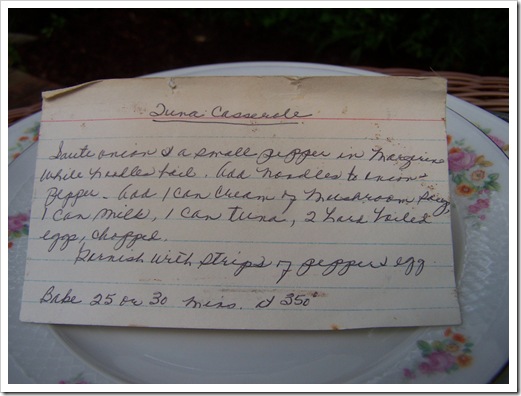 Tuna Casserole
Saute onion & a small pepper in Margerine
while Noodles boil. Add Noodles to onion &
pepper. Add 1 Can Cream of Mushroom Soup,
1 Can Milk, 1 Can tuna, 2 hard boiled
eggs, chopped.
Garnish with strips of pepper & egg
Bake 25 or 30 mins. at 350°